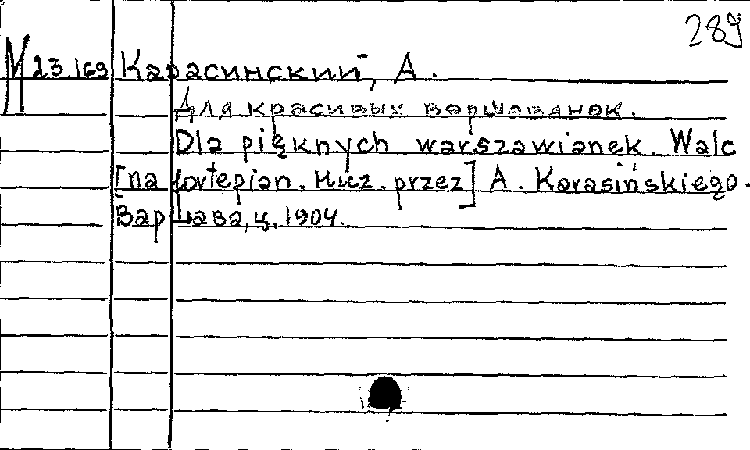 289
М 23.169 Карасинский, А.
Для красивых варшавянок.
Dla pięknych warszawianek. Walc
[na fortepian. Muz. przez] A. Karasińskiego.
Варшава, ц. 1904.